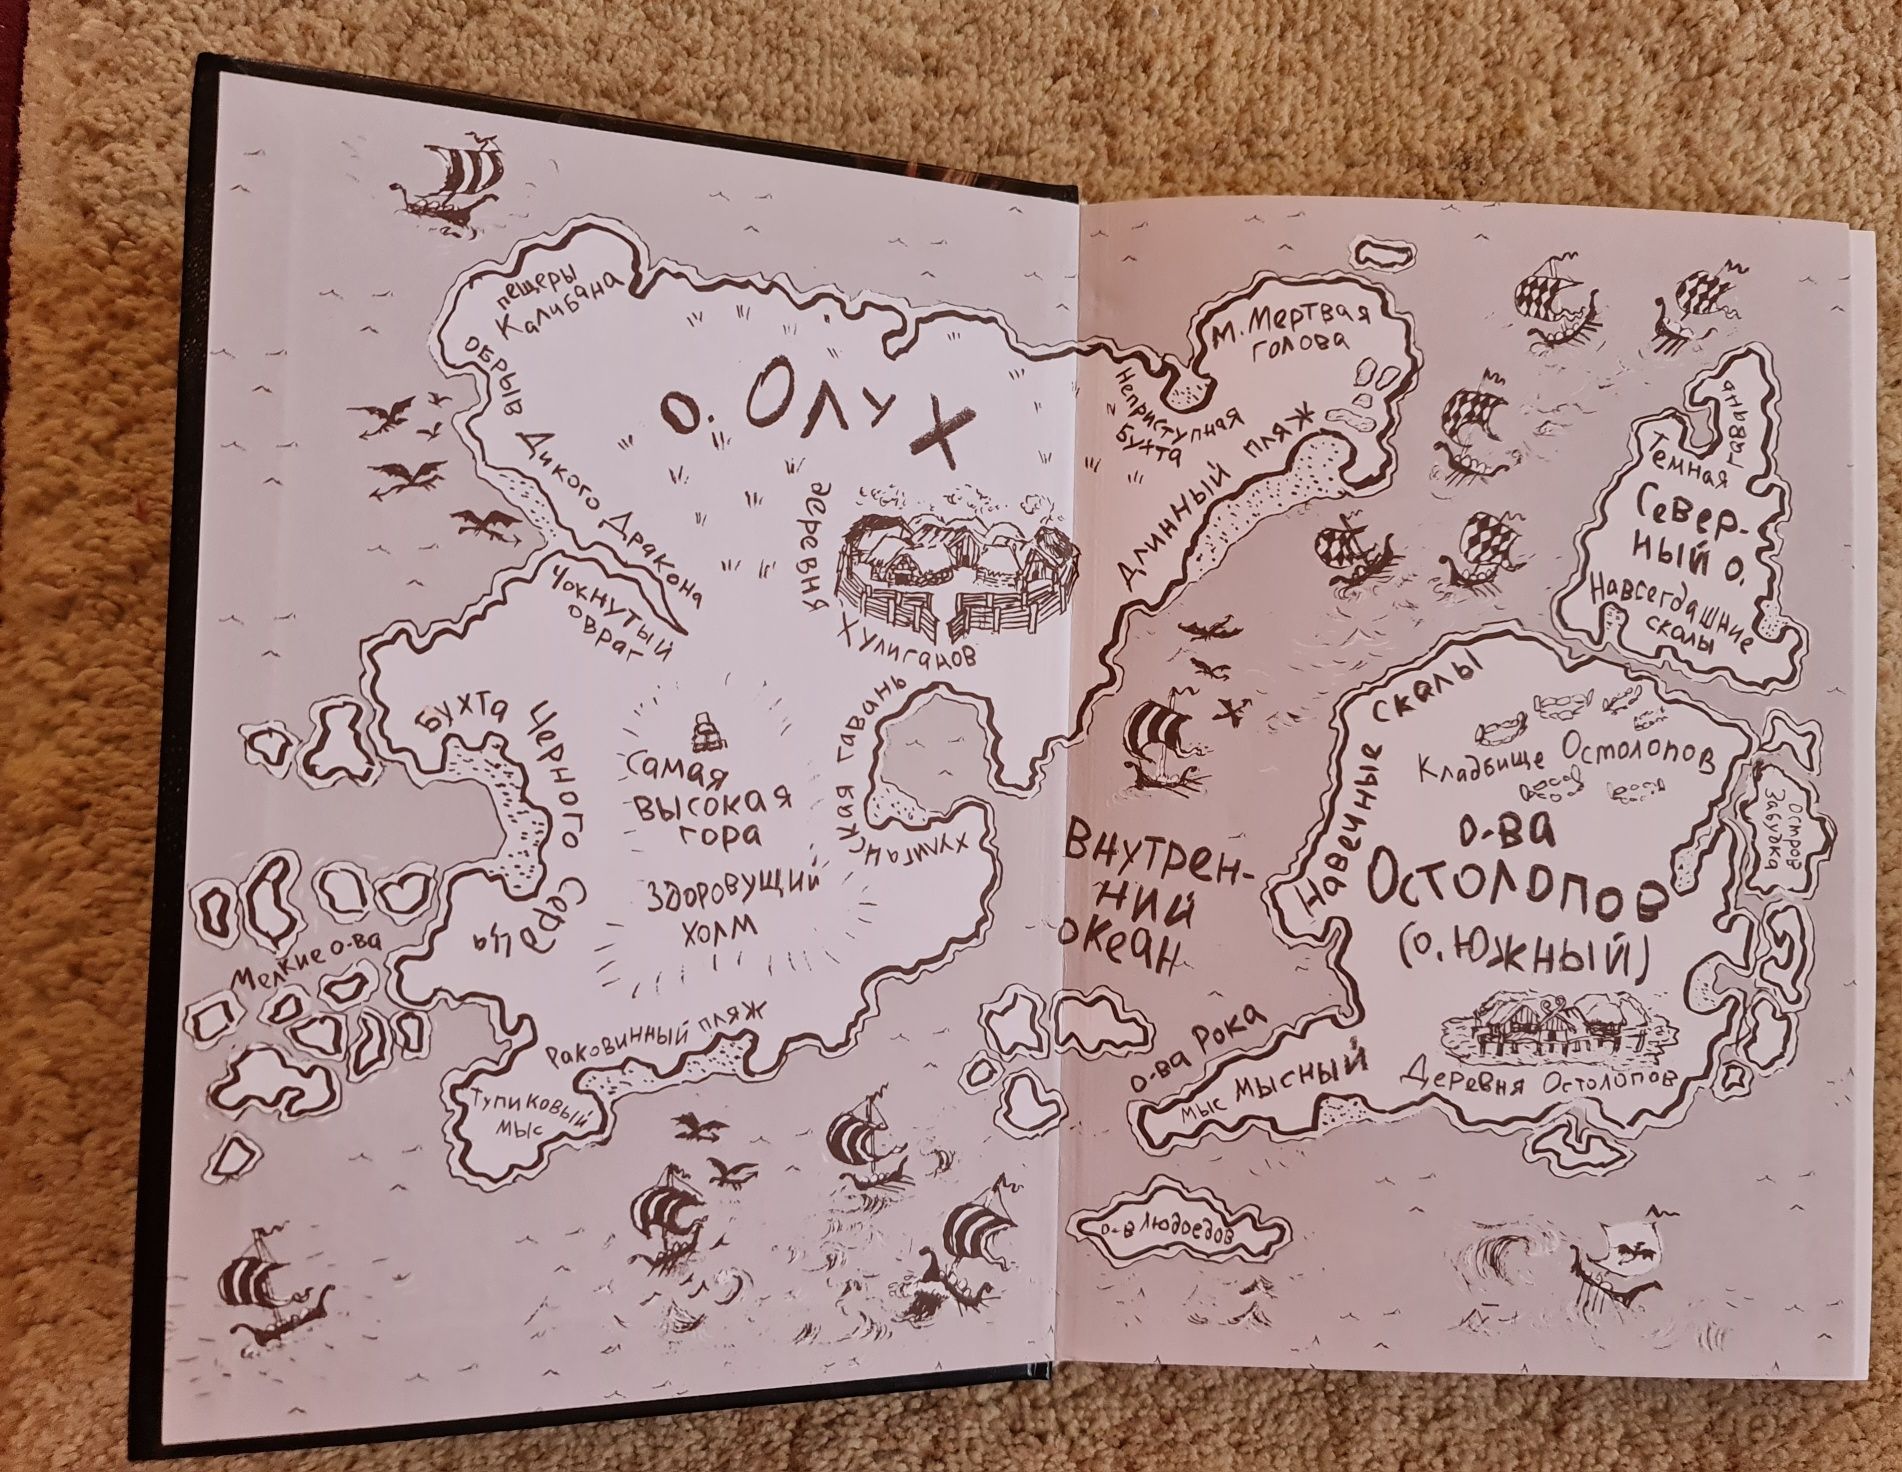 пещеры
Калибана
обрыв Дикого Дракона
о. Олух
Чокнутый
овраг
деревня
Хулиганов
Бухта Черного Сердца
Самая
высокая
гора
Здоровущий
холм
Хулиганская гавань
Мелкие о-ва
Раковинный пляж
Тупиковый
мыс
М. Мертвая
голова
Неприступная
Бухта
Длинный пляж
Внутрен-
ний
океан
Темная
гавань
Север-
ный о.
Навсегдашние
скалы
Навечные скалы
Кладбище Остолопов
о-ва
Остолопов
(о. Южный)
Остров
Забудка
Деревня Остолопов
о-ва Рока
мыс Мысный
о-в Людоедов